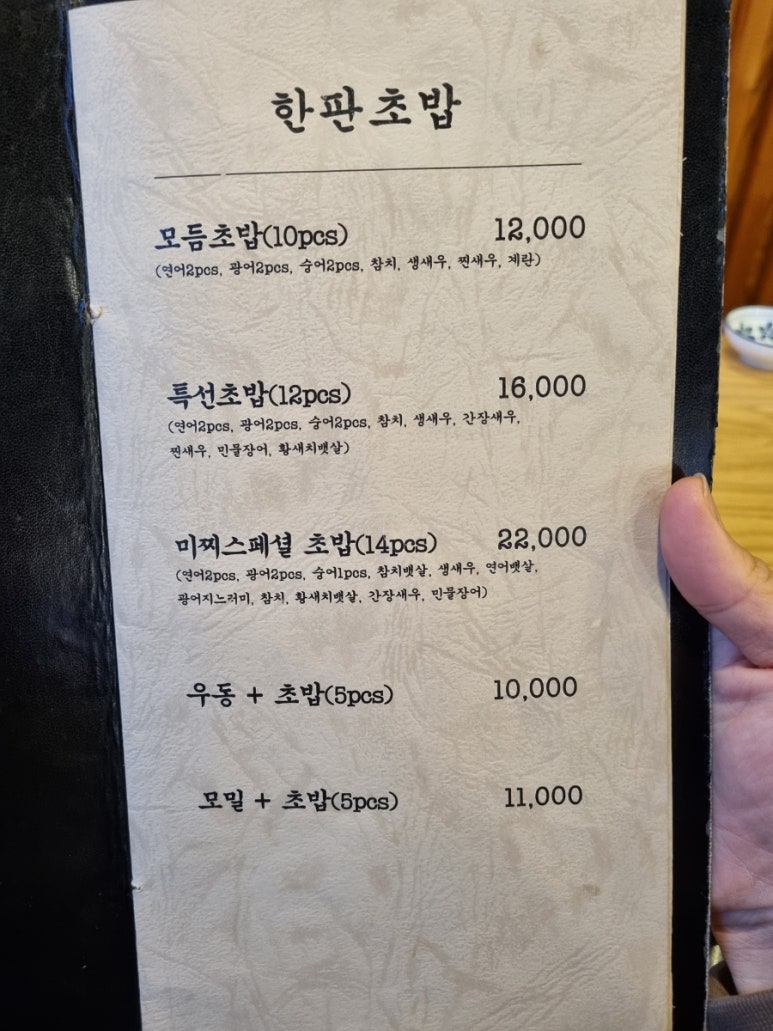 한판초밥
모듬초밥(10pcs) 12,000
(연어2pcs, 광어2pcs, 숭어2pcs, 참치, 생새우, 찐새우, 계란)
특선초밥(12pcs) 16,000
(연어2pcs, 광어2pcs, 숭어2pcs, 참치, 생새우, 간장새우,
찐새우, 민물장어, 황새치뱃살)
미찌스페셜 초밥(14pcs) 22,000
(연어2pcs, 광어2pcs, 숭어1pcs, 참치뱃살, 생새우, 연어뱃살,
광어지느러미, 참치, 황새치뱃살, 간장새우, 민물장어)
우동 + 초밥(5pcs) 10,000
모밀 + 초밥(5pcs) 11,000